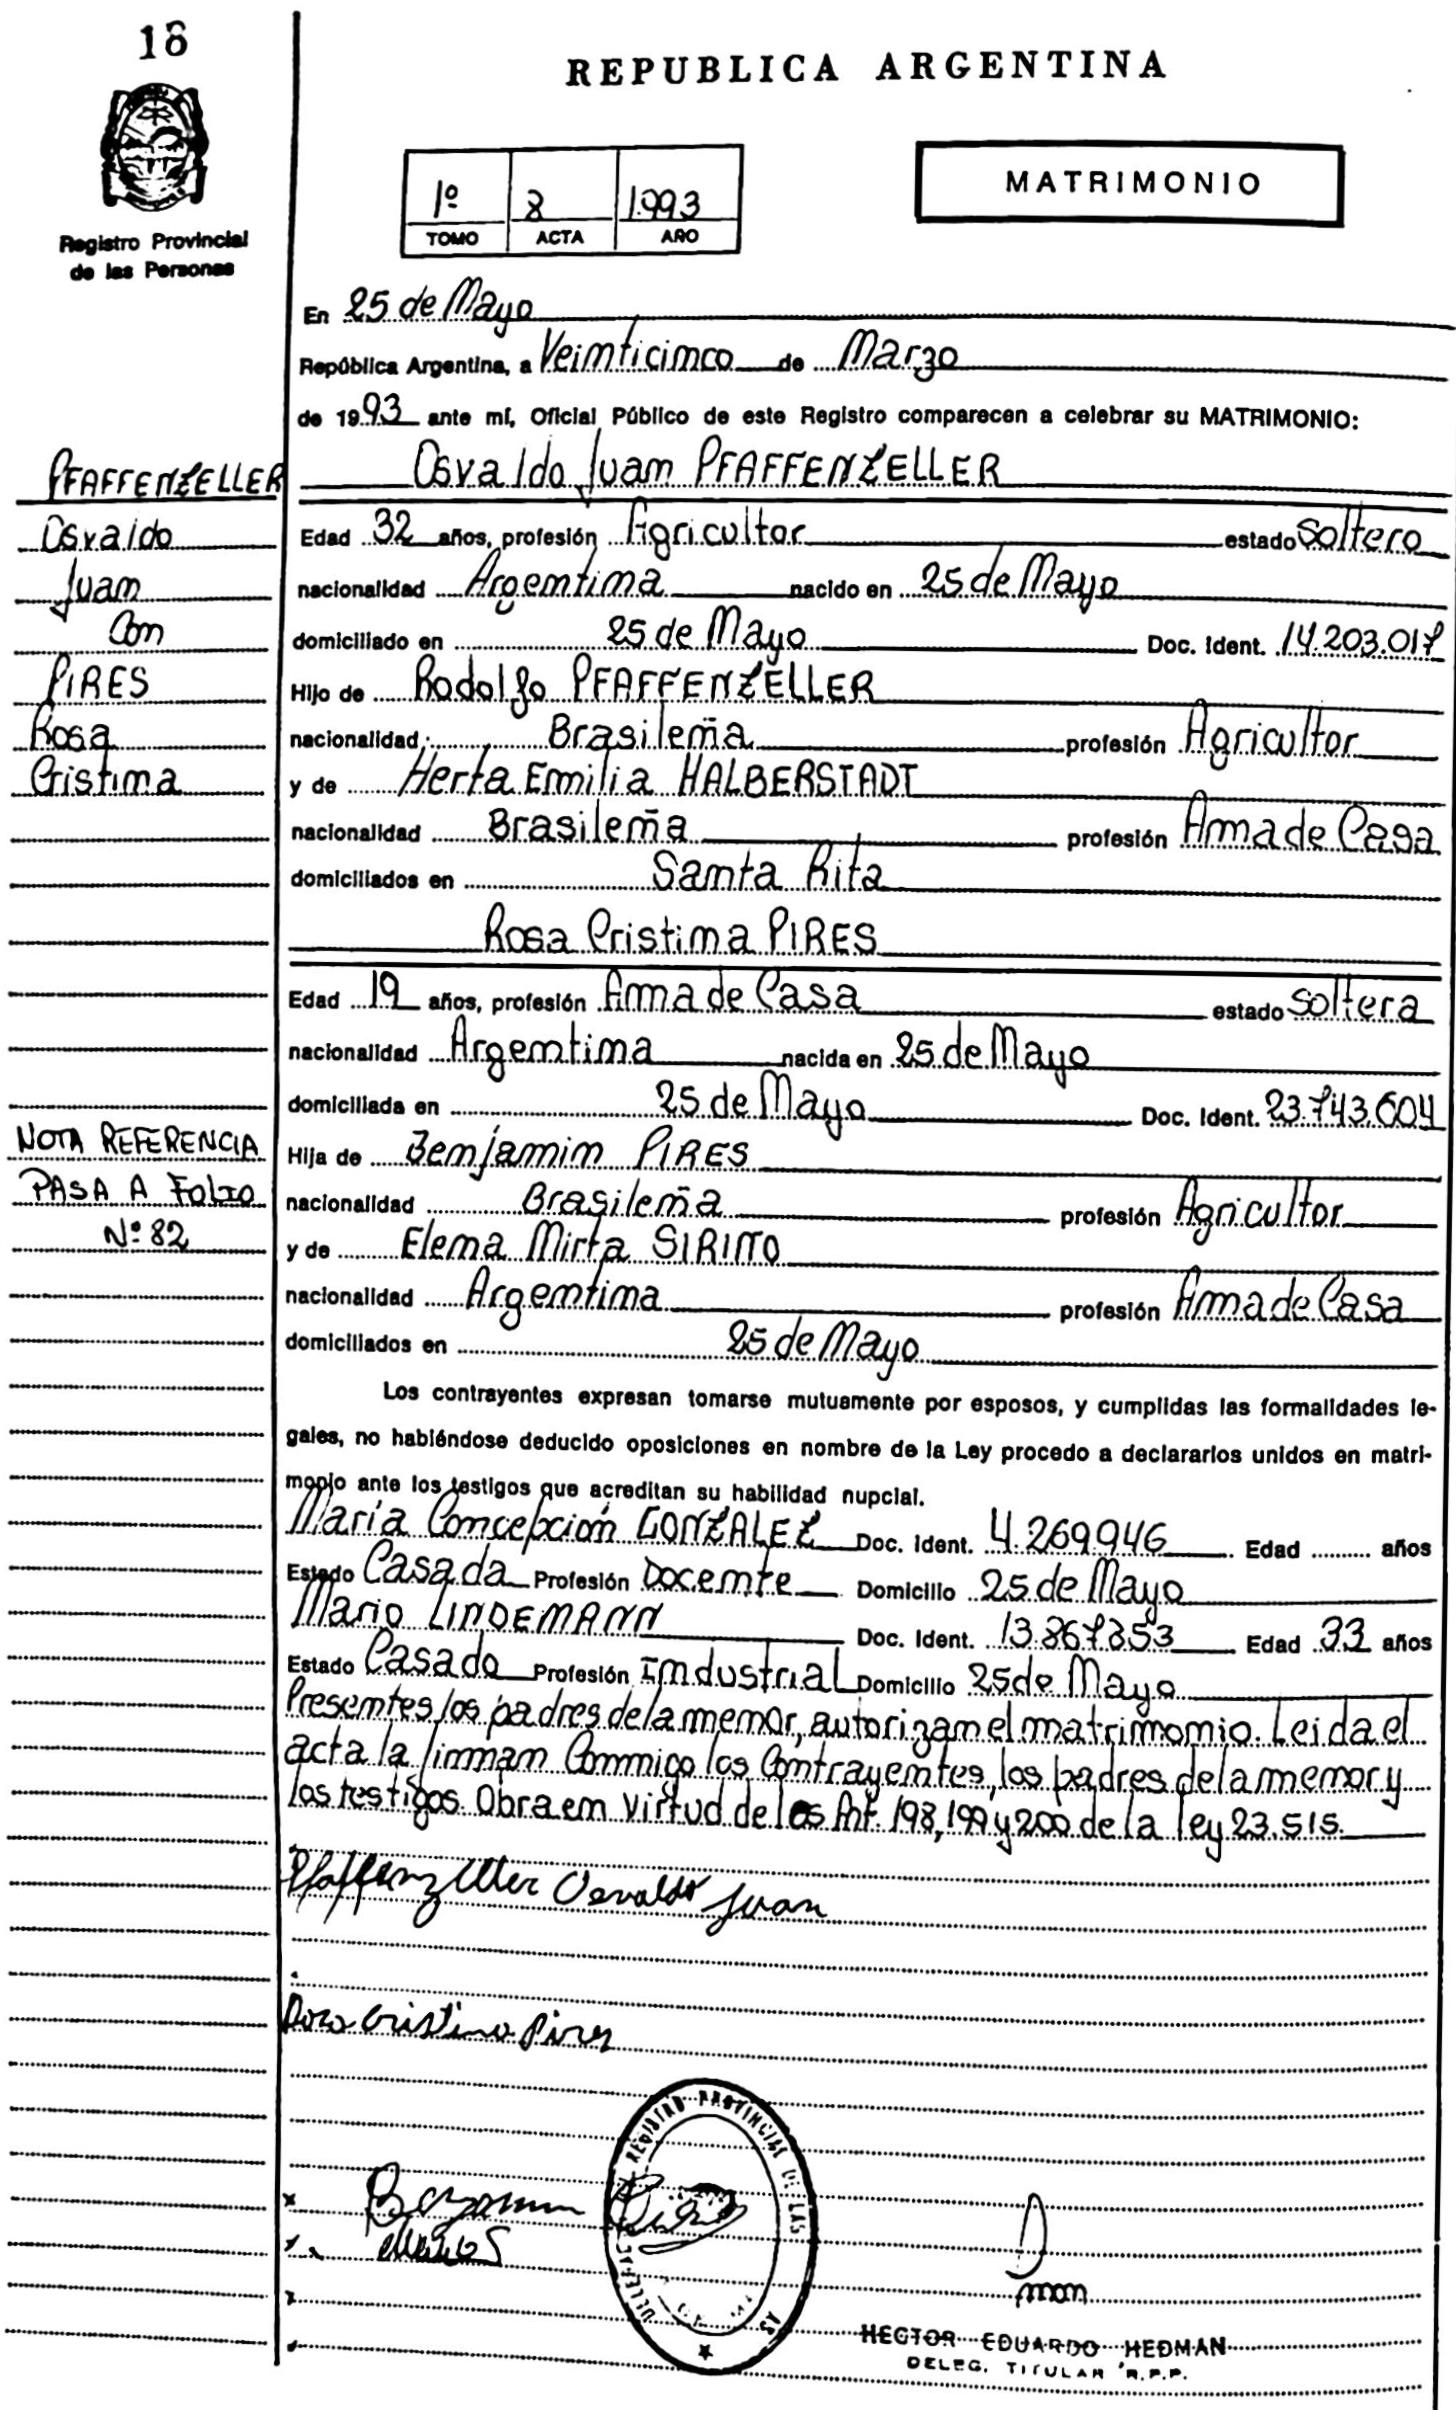 18
REPUBLICA ARGENTINA
Registro Provincial
de las Personas
1º 8 1.993
TOMO ACTA AÑO
MATRIMONIO
En 25 de Mayo
República Argentina, a Veinticinco de Marzo
de 1993 ante mí, Oficial Público de este Registro comparecen a celebrar su MATRIMONIO:
PFAFFENZELLER
Osvaldo
Juan
Con
PIRES
Rosa
Cristina
Osvaldo Juan PFAFFENZELLER
Edad 32 años, profesión Agricultor estado Soltero
nacionalidad Argentina nacido en 25 de Mayo
domiciliado en 25 de Mayo Doc. Ident. 14.203.017
Hijo de Rodolfo PFAFFENZELLER
nacionalidad Brasileña profesión Agricultor
y de Herta Emilia HALBERSTADT
nacionalidad Brasileña profesión Ama de Casa
domiciliados en Santa Rita
Rosa Cristina PIRES
Edad 19 años, profesión Ama de Casa estado Soltera
nacionalidad Argentina nacida en 25 de Mayo
domiciliada en 25 de Mayo Doc. Ident. 23.743.604
NOTA REFERENCIA
PASA A FOLIO
Nº 82
Hija de Benjamin PIRES
nacionalidad Brasileña profesión Agricultor
y de Elena Mirta SIRINO
nacionalidad Argentina profesión Ama de Casa
domiciliados en 25 de Mayo
Los contrayentes expresan tomarse mutuamente por esposos, y cumplidas las formalidades le-
gales, no habiéndose deducido oposiciones en nombre de la Ley procedo a declararlos unidos en matri-
monio ante los testigos que acreditan su habilidad nupcial.
María Concepción GONZALEZ Doc. Ident. 4.269946 Edad ......... años
Estado Casada Profesión Docente Domicilio 25 de Mayo
Mario LINDEMANN Doc. Ident. 13.867.853 Edad 33 años
Estado Casado Profesión Industrial Domicilio 25 de Mayo
Presentes los padres de la menor, autorizan el matrimonio. Leida el
acta la firman Conmigo los Contrayentes, los padres de la menor y
los testigos. Obra en virtud de los Art. 198, 199 y 200 de la ley 23.515.
Pfaffenzeller Osvaldo Juan
Rosa Cristina Pires
REGISTRO PROVINCIAL DE LAS
HECTOR EDUARDO HEDMAN
DELEG. TITULAR R.P.P.